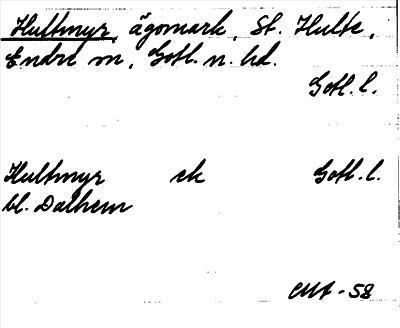 Hultmyr, ägomark, St. Hulte,
Endre sn, Gotl. n. hd.
Gotl. l.
Hultmyr ek Gotl. l.
bl. Dalhem
-58